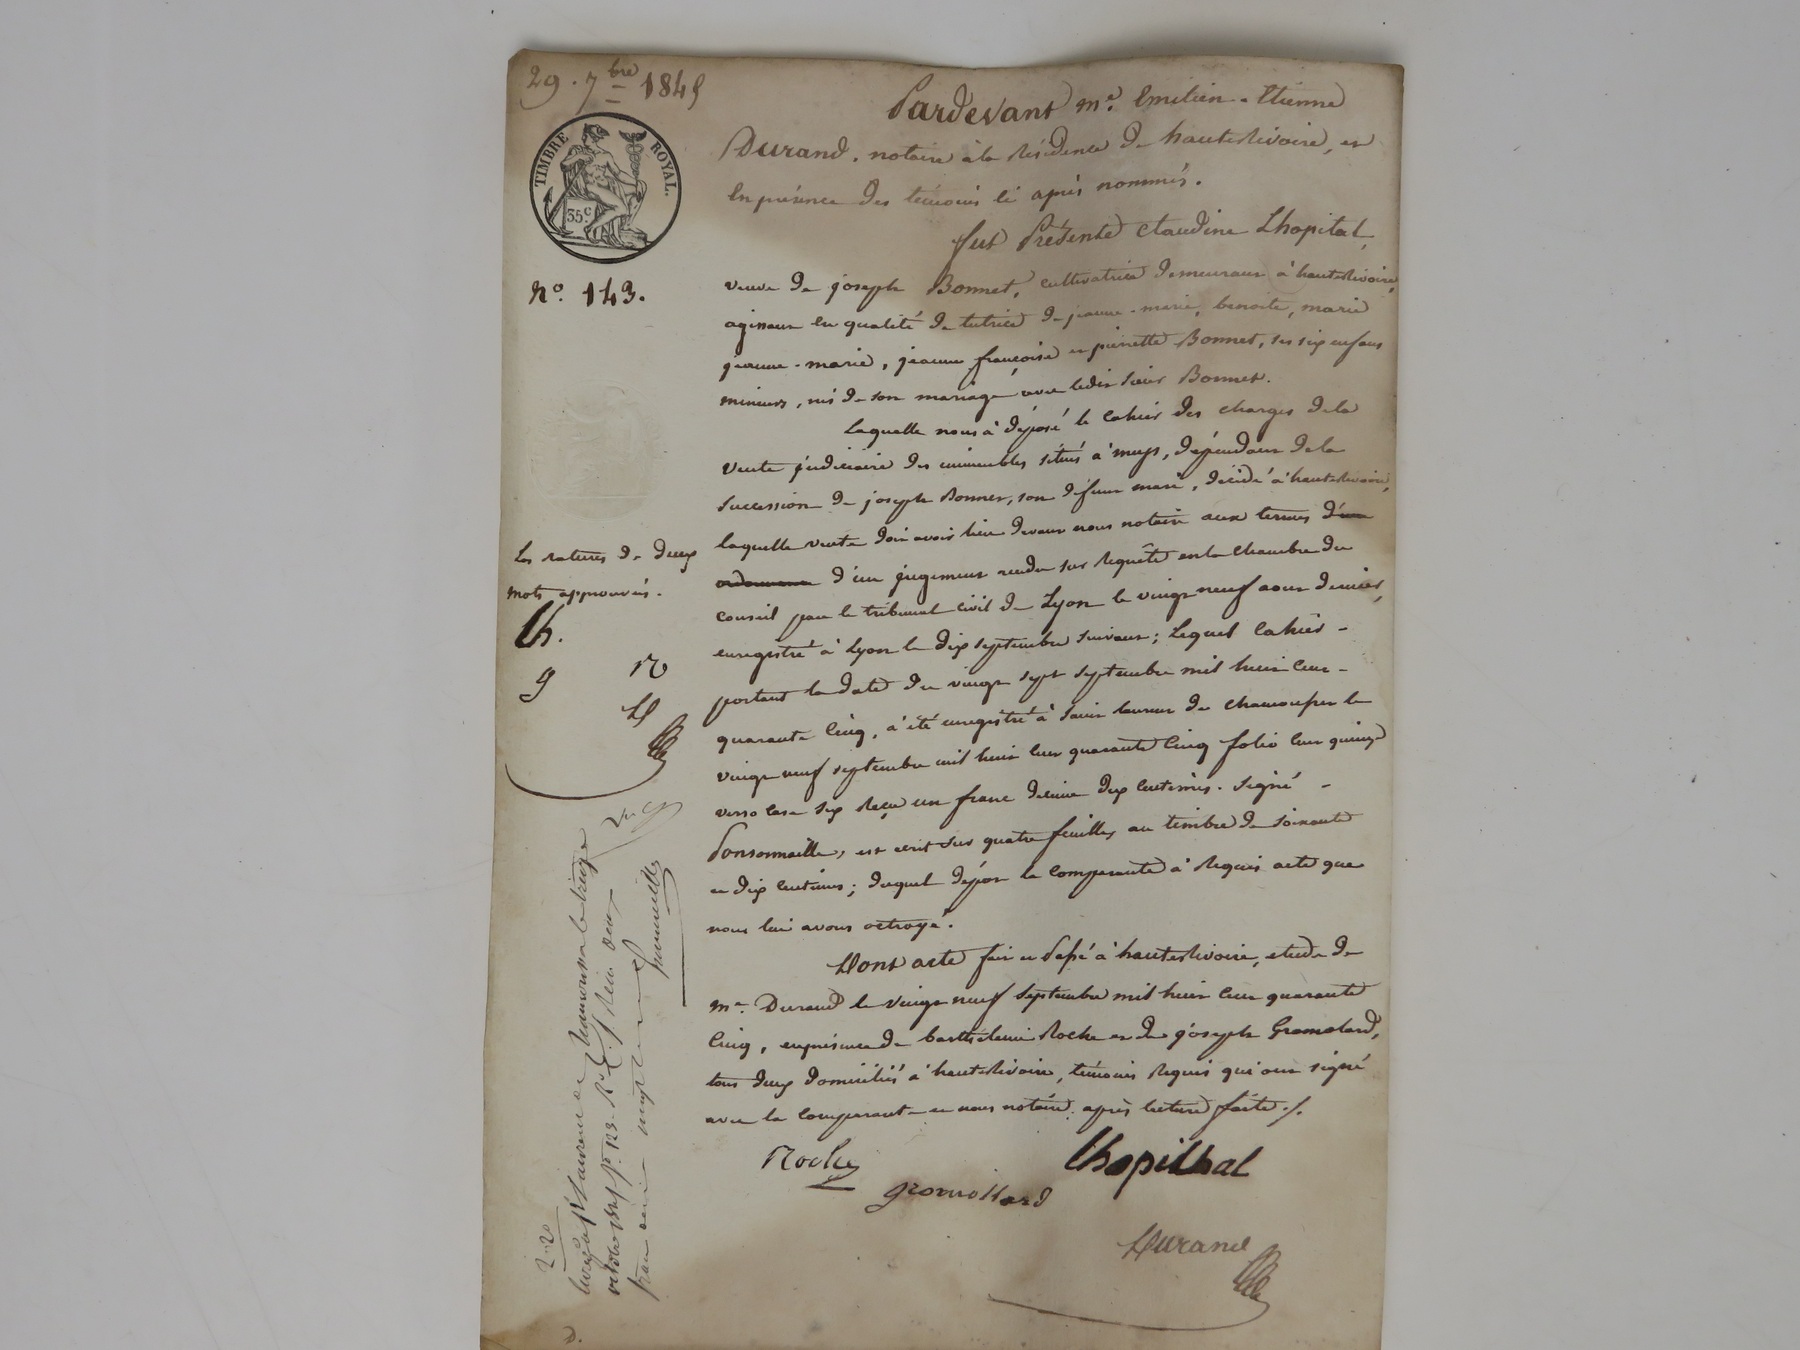 29. 7bre 1845
TIMBRE ROYAL.
35c
No. 143.
Pardevant Me. Emilien-Etienne
Durand, notaire à la résidence de hauterivoire, et
en présence des témoins ci après nommés.
fut Présente Claudine Lhopital,
veuve de joseph Bonnet, cultivatrice demeurant à hauterivoire,
agissant en qualité de tutrice de jeanne-marie, benoite, marie
jeanne-marie, jeanne françoise et pierrette Bonnet, ses six enfans
mineurs, nés de son mariage avec ledit sieur Bonnet.
Laquelle nous à déposé le cahier des charges de la
vente judiciaire des immeubles situés à meys, dépendant de la
succession de joseph Bonnet, son défunt mari, décédé à hauterivoire,
laquelle vente doit avoir lieu devant nous notaire aux termes d'une
ordonnance d'un jugement rendu sur requête en la chambre du
conseil par le tribunal civil de Lyon le vingt neuf aout dernier,
enregistré à Lyon le dix septembre suivant; Lequel Cahier -
portant la date du vingt sept septembre mil huit cent -
quarante cinq, à été enregistré à Saint Laurent de chamousset le
vingt neuf septembre mil huit cent quarante cinq folio cent quinze
verso case six Reçu un franc décime dix centimes. Signé -
Ponsonnaille, est écrit sur quatre feuilles au timbre de soixante
et dix centimes; duquel dépôt la comparante à Requis acte que
nous lui avons octroyé.
Dont acte fait et Passé à hauterivoire, etude de
Me. Durand le vingt neuf septembre mil huit cent quarante
cinq, en présence de barthélemi Roche et de joseph Gromolard,
tous deux domiciliés à hauterivoire, témoins Requis qui ont signé
avec la comparante et nous notaire, après lecture faite ./.
Les ratures de deux
mots approuvées.
Lh.
g R
D
Roche
Lhopithal
gromollard
Durand
Enregistré à St Laurent de Chamousset le treize
franc
D.